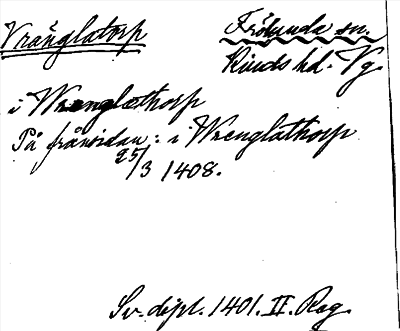 Vränglatorp
Frölunda sn.
Kinds hd. Vg.
i Wrenglathorp
På frånsidan: i Wrenglathorp
25/3 1408.
Sv. dipl. 1401. II. Reg.